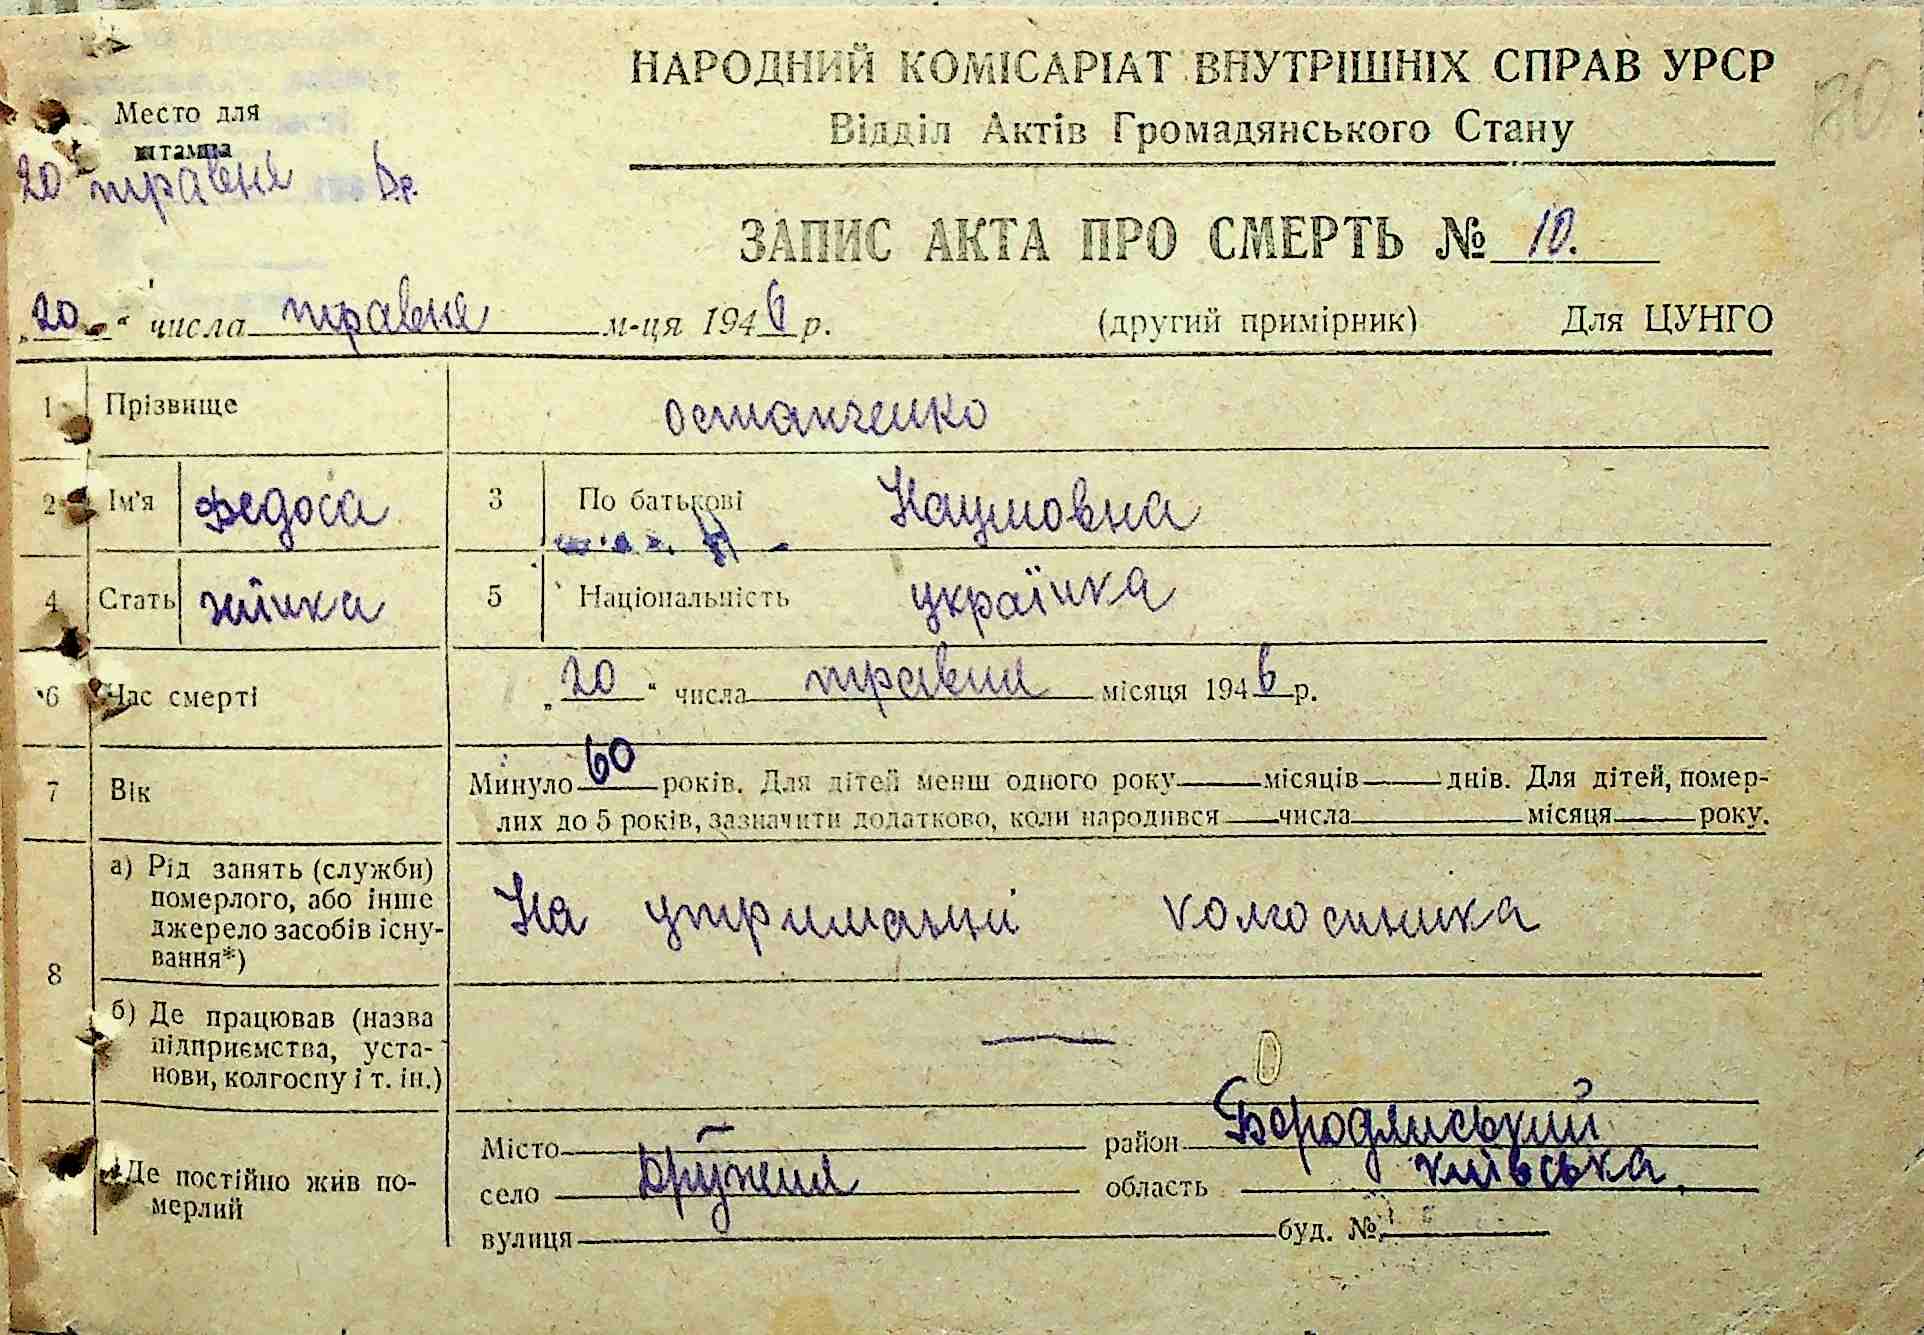 НАРОДНИЙ КОМІСАРІАТ ВНУТРІШНІХ СПРАВ УРСР
Відділ Актів Громадянського Стану
80
Место для
штампа
20 травня 6 р.
ЗАПИС АКТА ПРО СМЕРТЬ № 10.
„20“ числа травня м-ця 1946 р.
(другий примірник) Для ЦУНГО
1 Прізвище Остапченко
2 Ім'я Федоса 3 По батькові Наумовна
4 Стать жінка 5 Національність українка
6 Час смерті „20“ числа травня місяця 1946 р.
7 Вік Минуло 60 років. Для дітей менш одного року — місяців — днів. Для дітей, помер-
лих до 5 років, зазначити додатково, коли народився — числа — місяця — року.
8 а) Рід занять (служби)
померлого, або інше
джерело засобів існу-
вання*)
На утриманні колгоспника
б) Де працював (назва
підприємства, уста-
нови, колгоспу і т. ін.)
—
Де постійно жив по-
мерлий
Місто — район Бородянський
село Дружня область Київська.
вулиця буд. №